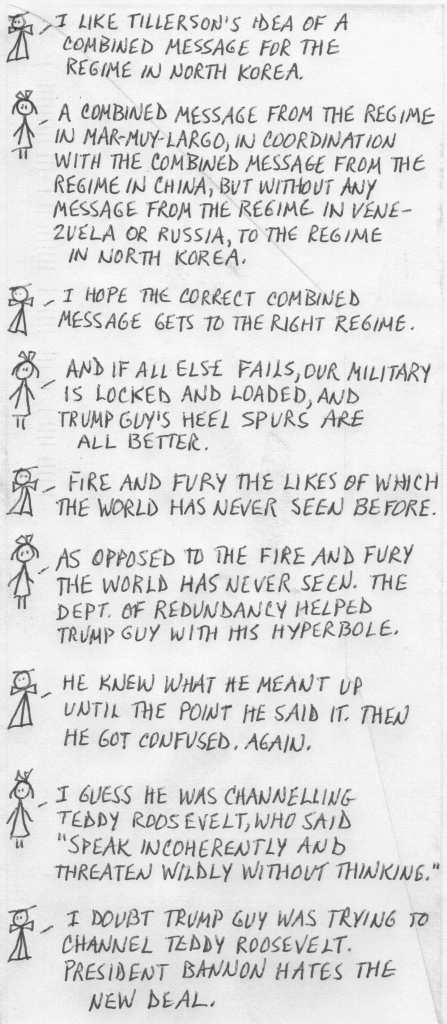 I LIKE TILLERSON'S IDEA OF A
COMBINED MESSAGE FOR THE
REGIME IN NORTH KOREA.
A COMBINED MESSAGE FROM THE REGIME
IN MAR-MUY-LARGO, IN COORDINATION
WITH THE COMBINED MESSAGE FROM THE
REGIME IN CHINA, BUT WITHOUT ANY
MESSAGE FROM THE REGIME IN VENE-
ZUELA OR RUSSIA, TO THE REGIME
IN NORTH KOREA.
I HOPE THE CORRECT COMBINED
MESSAGE GETS TO THE RIGHT REGIME.
AND IF ALL ELSE FAILS, OUR MILITARY
IS LOCKED AND LOADED, AND
TRUMP GUY'S HEEL SPURS ARE
ALL BETTER.
FIRE AND FURY THE LIKES OF WHICH
THE WORLD HAS NEVER SEEN BEFORE.
AS OPPOSED TO THE FIRE AND FURY
THE WORLD HAS NEVER SEEN. THE
DEPT. OF REDUNDANCY HELPED
TRUMP GUY WITH HIS HYPERBOLE.
HE KNEW WHAT HE MEANT UP
UNTIL THE POINT HE SAID IT. THEN
HE GOT CONFUSED. AGAIN.
I GUESS HE WAS CHANNELLING
TEDDY ROOSEVELT, WHO SAID
"SPEAK INCOHERENTLY AND
THREATEN WILDLY WITHOUT THINKING."
I DOUBT TRUMP GUY WAS TRYING TO
CHANNEL TEDDY ROOSEVELT.
PRESIDENT BANNON HATES THE
NEW DEAL.